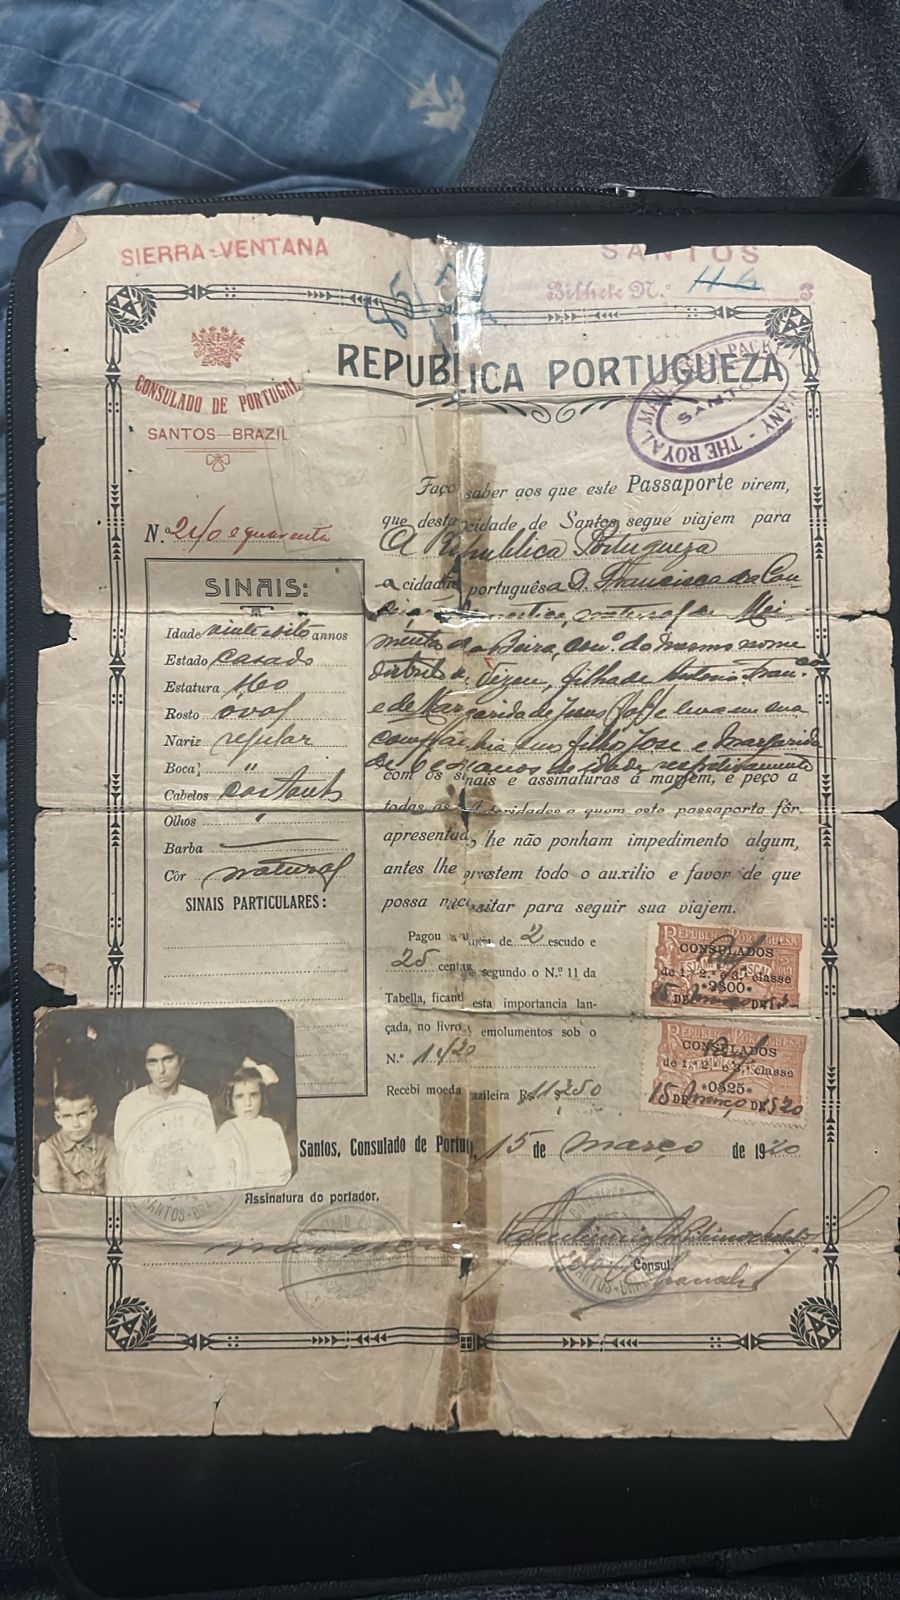 SIERRA-VENTANA
SANTOS
Bilhete N.º
REPUBLICA PORTUGUEZA
CONSULADO DE PORTUGAL
SANTOS—BRAZIL
THE ROYAL MAIL PACKET
SANTOS
N.º 240 e quarenta
Faço saber aos que este Passaporte virem,
que desta cidade de Santos segue viajem para
A Republica Portugueza
a cidadã portuguêsa D. Francisca da Con-
domestica, natural de Moi-
menta da Beira, con.º do mesmo nome
distrito de Vizeu, filha de Antonio Fran.co
e de Margarida de Jesus e leva em sua
companhia seus filhos José e Margarida
de 6 e anos de idade respectivamente
com os sinais e assinaturas á marjem, e peço a
todas as autoridades a quem este passaporte fôr
apresentado, lhe não ponham impedimento algum,
antes lhe prestem todo o auxilio e favor de que
possa necessitar para seguir sua viajem.
SINAIS:
Idade vinte e oito annos
Estado casado
Estatura 1,60
Rosto oval
Nariz regular
Boca "
Cabelos castanhos
Olhos "
Barba
Côr natural
SINAIS PARTICULARES:
Pagou a quantia de 2 escudo e
25 centavos segundo o N.º 11 da
Tabella, ficando esta importancia lan-
çada, no livro de emolumentos sob o
N.º 1420
Recebi moeda brazileira Rs. 11$250
REPUBLICA PORTUGUESA
CONSULADOS
ESTAMPILHA FISCAL
de 1.ª 2.ª e 3.ª classe
2$00
15 DE Março DE 1920
REPUBLICA PORTUGUESA
CONSULADOS
de 1.ª 2.ª e 3.ª classe
0$25
15 DE Março DE 1920
Santos, Consulado de Portugal, 15 de março de 1920
Assinatura do portador,
não escreve
Consul.
SANTOS-BRAZIL